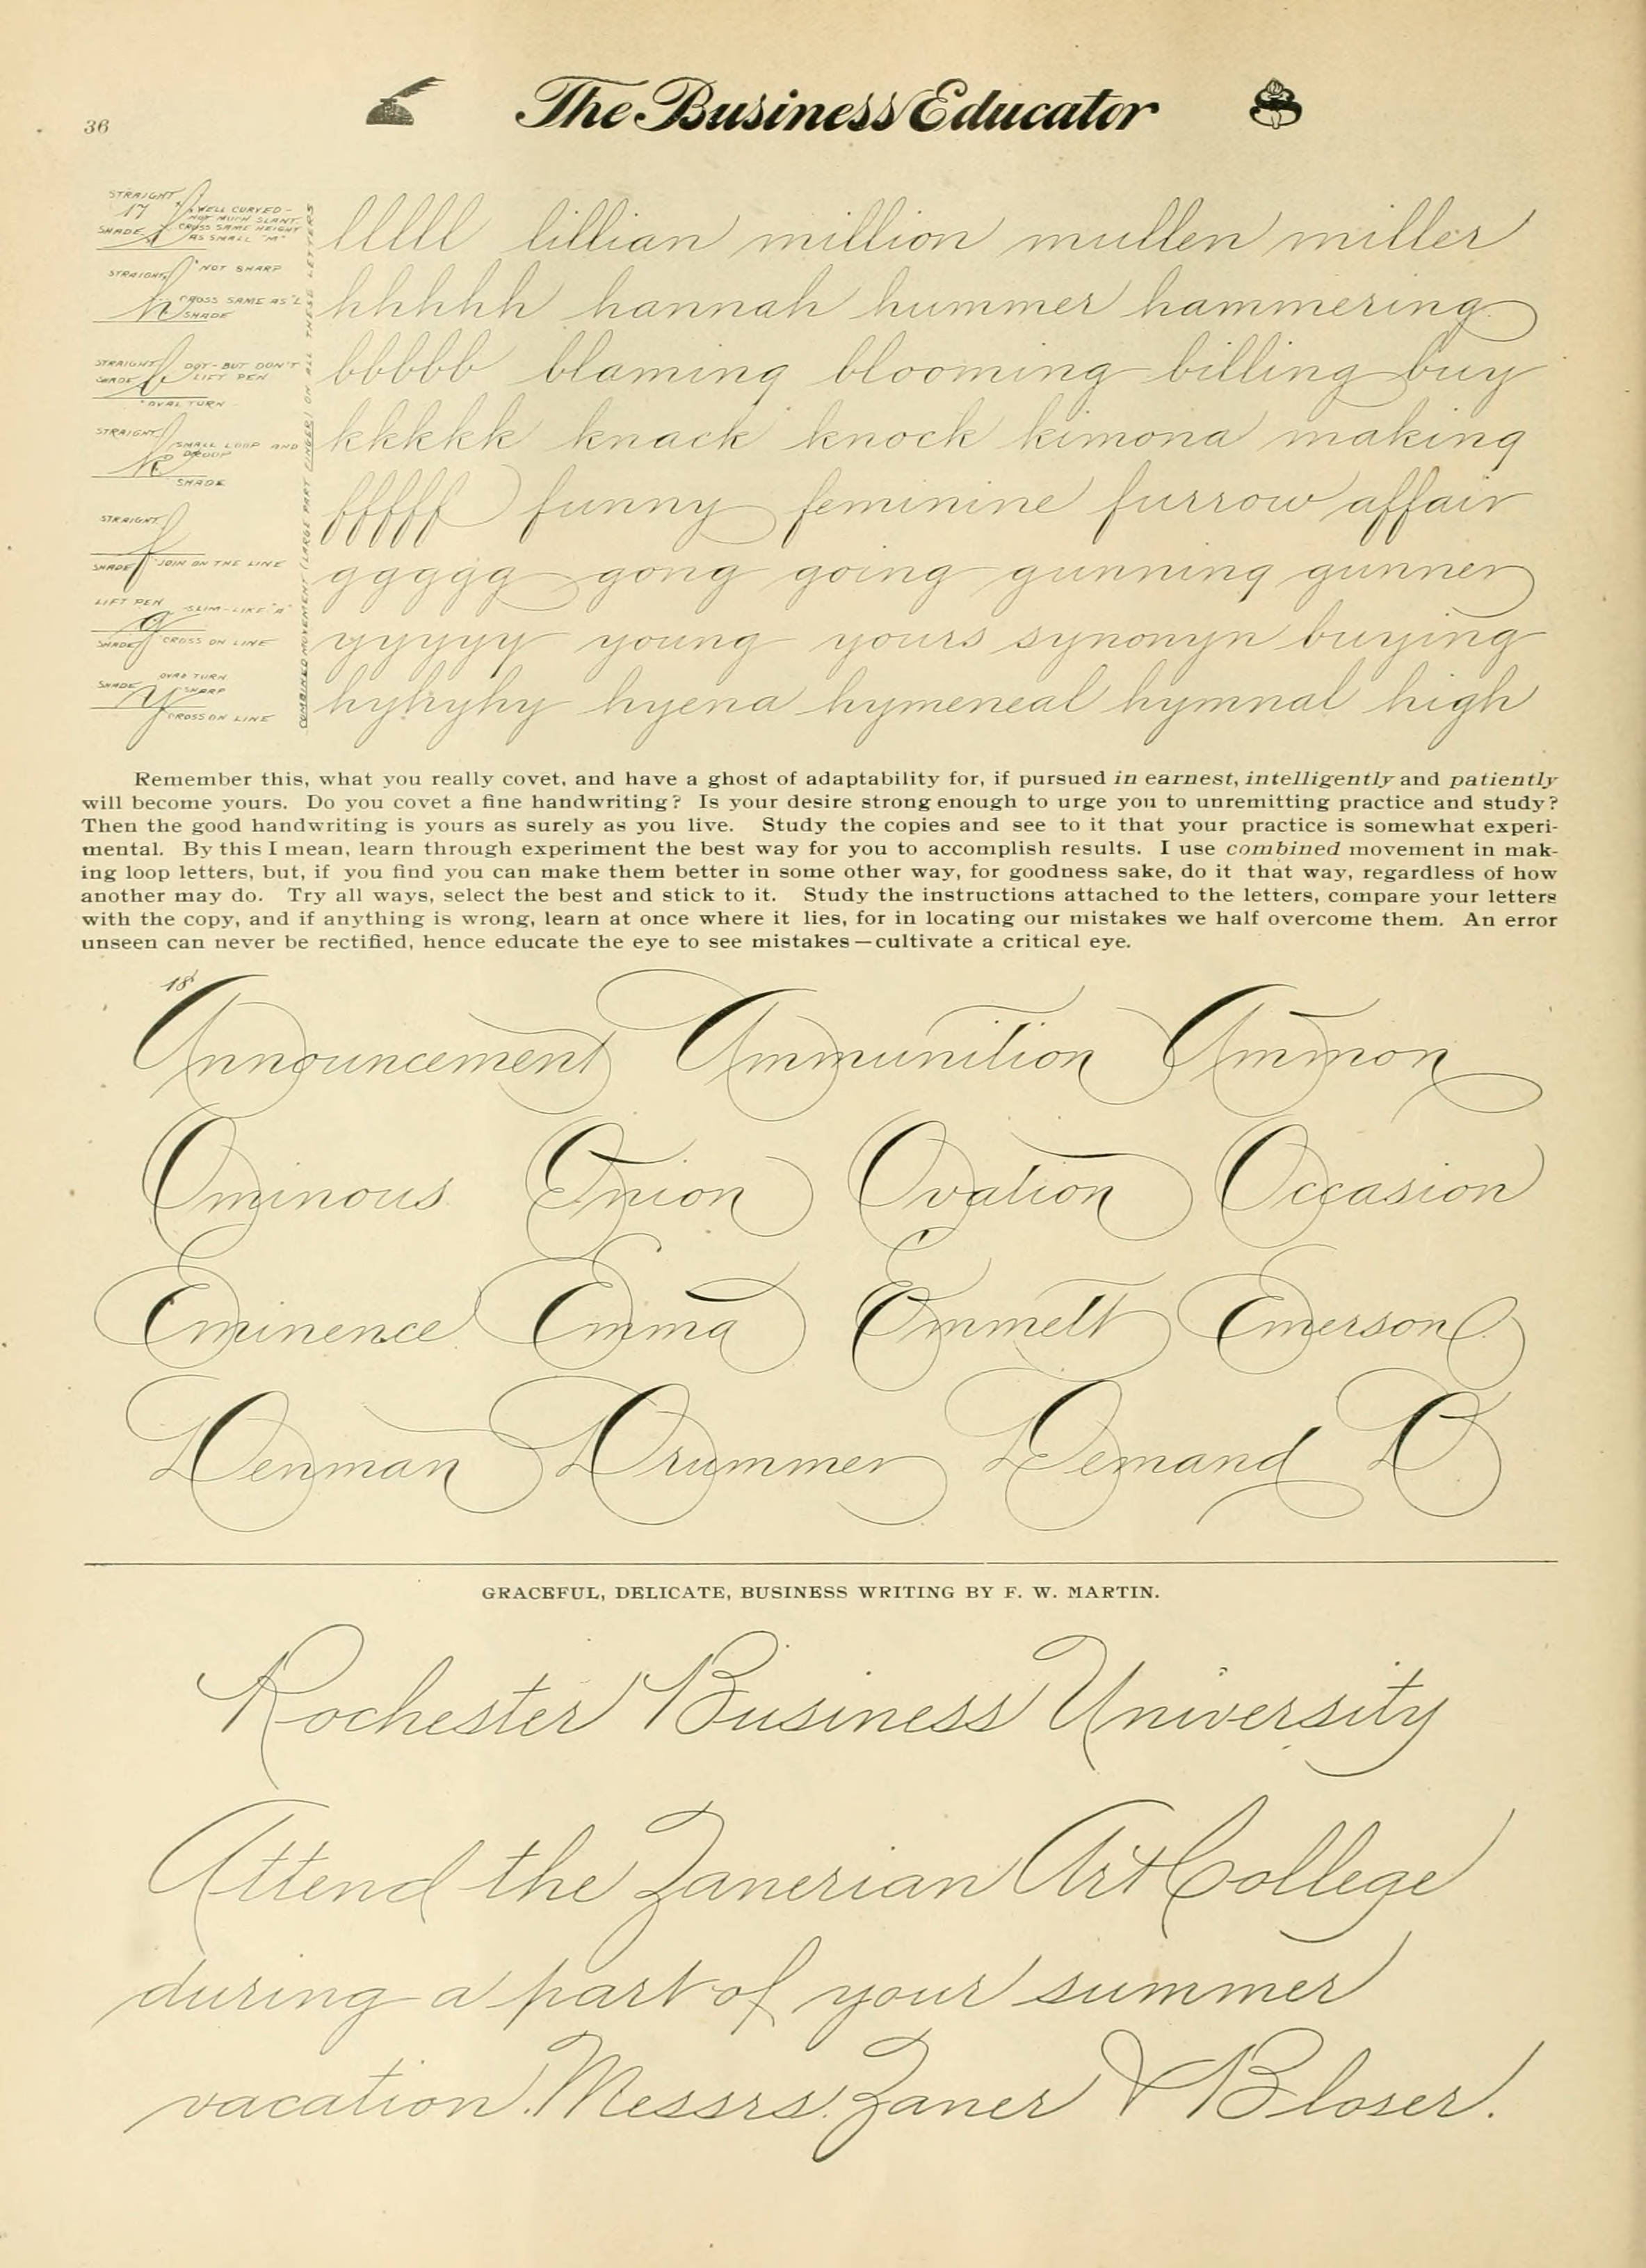 36
The Business Educator
STRAIGHT
17
WELL CURVED—
NOT MUCH SLANT.
CROSS SAME HEIGHT
AS SMALL "M"
SHADE
lllll lillian million mullen miller
STRAIGHT
NOT SHARP
CROSS SAME AS "L"
SHADE
hhhhh hannah hummer hammering
STRAIGHT
DOT—BUT DON'T
LIFT PEN
SHADE
OVAL TURN
bbbbb blaming blooming billing buy
STRAIGHT
SMALL LOOP AND
DROOP
SHADE
kkkkk knack knock kimona making
STRAIGHT
SHADE
JOIN ON THE LINE
fffff funny feminine furrow affair
LIFT PEN
SLIM—LIKE "A"
SHADE
CROSS ON LINE
ggggg gong going gunning gunner
yyyyy young yours synonyn buying
OVAL TURN
SHADE
SHARP
CROSS ON LINE
hyhyhy hyena hymeneal hymnal high
COMBINED MOVEMENT (LARGE PART FINGER) ON ALL THESE LETTERS
Remember this, what you really covet, and have a ghost of adaptability for, if pursued in earnest, intelligently and patiently
will become yours. Do you covet a fine handwriting? Is your desire strong enough to urge you to unremitting practice and study?
Then the good handwriting is yours as surely as you live. Study the copies and see to it that your practice is somewhat experi-
mental. By this I mean, learn through experiment the best way for you to accomplish results. I use combined movement in mak-
ing loop letters, but, if you find you can make them better in some other way, for goodness sake, do it that way, regardless of how
another may do. Try all ways, select the best and stick to it. Study the instructions attached to the letters, compare your letters
with the copy, and if anything is wrong, learn at once where it lies, for in locating our mistakes we half overcome them. An error
unseen can never be rectified, hence educate the eye to see mistakes—cultivate a critical eye.
18
Announcement Ammunition Ammon
Ominous Onion Ovation Occasion
Eminence Emma Emmett Emerson
Denman Drummer Demand D
GRACEFUL, DELICATE, BUSINESS WRITING BY F. W. MARTIN.
Rochester Business University
Attend the Zanerian Art College
during a part of your summer
vacation. Messrs. Zaner & Bloser.